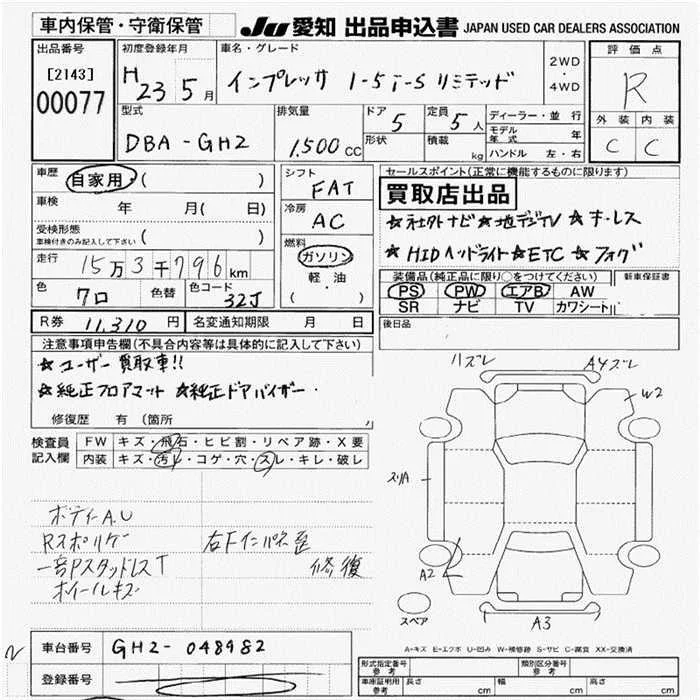 車内保管・守衛保管 JU 愛知 出品申込書 JAPAN USED CAR DEALERS ASSOCIATION
出品番号 初度登録年月 車名・グレード 2WD ・ 4WD 評価点
[2143] H 23 5月 インプレッサ 1-5i-S リミテッド R
00077
型式 排気量 ドア 定員 ディーラー・並行 外装 内装
DBA-GH2 1,500cc 5 5人 モデル年式 年 C C
形状 積載 kg ハンドル 左・右
車歴 自家用・( ) シフト FAT セールスポイント(正常に機能するものに限ります)
車検 年 月( 日) 冷房 AC 買取店出品
受検形態 車検付きのみ記入して下さい ( ) ★社外ナビ★地デジTV★キーレス
走行 15万3千796km 燃料 ガソリン 軽・油 ( ) ★HIDヘッドライト★ETC★フォグ
色 クロ 色替 色コード 32J 装備品(純正品に限り○をつけてください) 新車保証書
PS PW エアB AW
SR ナビ TV カワシート
R券 11,310円 名変通知期限 月 日 後日品
注意事項申告欄(不具合内容等は具体的に記入して下さい)
★ユーザー買取車!!
★純正フロアマット ★純正ドアバイザー・
修復歴 有 (箇所
検査員記入欄 FW キズ・飛石・ヒビ割・リペア跡・X要
内装 キズ・汚れ・コゲ・穴・スレ・キレ・破レ
ハズレ A4ズレ
W2
スリA
ボディA.U
Rスポリケ゛ 右Fインパネ歪
一部PスタッドレスT 修復
ホイールキズ
A2
スペア A3
A-キズ E-エクボ U-凹み W-補修跡 S-サビ C-腐食 XX-交換済
車台番号 GH2-048982
登録番号
型式指定番号 参考 類別区分番号 参考
車庫証明用 参考 長さ cm 幅 cm 高さ cm